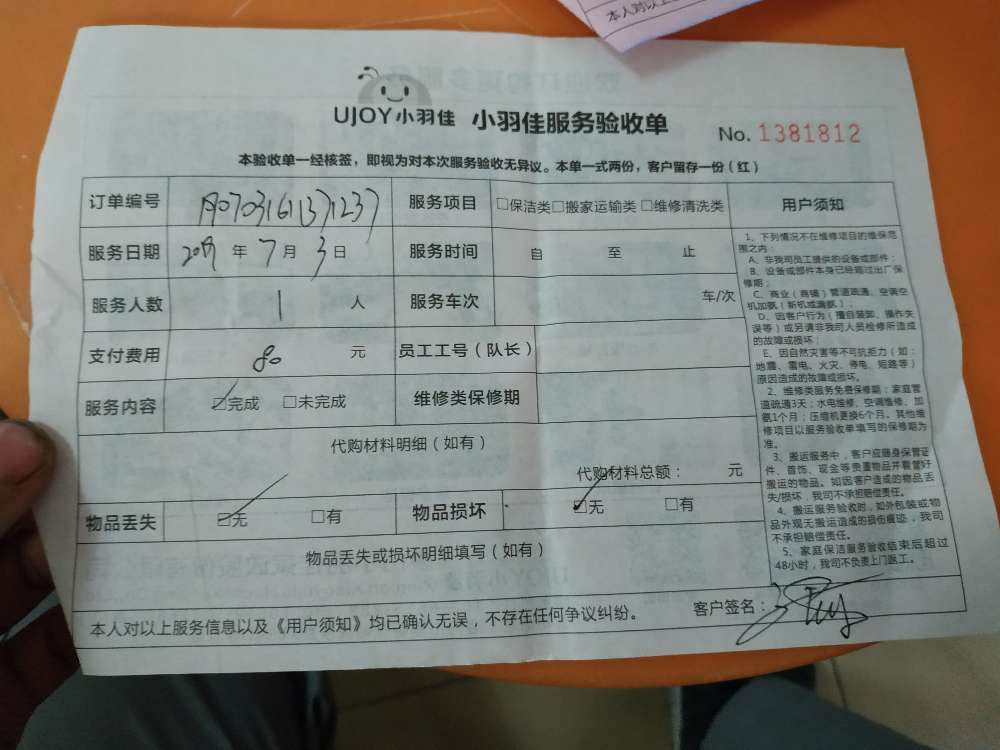 本人对以上
UJOY小羽佳 小羽佳服务验收单 No. 1381812
本验收单一经核签，即视为对本次服务验收无异议。本单一式两份，客户留存一份（红）
订单编号 服务项目 □保洁类□搬家运输类□维修清洗类
服务日期 年 7 月 3 日 服务时间 自 至 止
服务人数 1 人 服务车次 车/次
支付费用 80 元 员工工号（队长）
服务内容 ☑完成 □未完成 维修类保修期
代购材料明细（如有）
代购材料总额： 元
物品丢失 ☑无 □有 物品损坏 ☑无 □有
物品丢失或损坏明细填写（如有）
本人对以上服务信息以及《用户须知》均已确认无误，不存在任何争议纠纷。 客户签名：
用户须知
1、下列情况不在维修项目的维保范
围之内：
A、非我司员工提供的设备或部件；
B、设备或部件本身已经超过出厂保
修期；
C、商业（商铺）管道疏通、空调空
机加氨（新机或漏氨）；
D、因客户行为（擅自装卸、操作失
误等）或另请非我司人员检修所造成
的故障或损坏；
E、因自然灾害等不可抗拒力（如：
地震、雷电、火灾、停电、短路等）
原因造成的故障或损坏。
2、维修类服务免费保修期：家庭管
道疏通3天；水电维修、空调维修、加
氨1个月；压缩机更换6个月。其他维
修项目以服务验收单填写的保修期为
准。
3、搬运服务中，客户应随身保管证
件、首饰、现金等贵重物品并看管好
搬运的物品。如因客户造成的物品丢
失/损坏，我司不承担赔偿责任。
4、搬运服务验收时，如外包装或物
品外观无搬运造成的损伤痕迹，我司
不承担赔偿责任。
5、家庭保洁服务验收结束后超过
48小时，我司不负责上门返工。